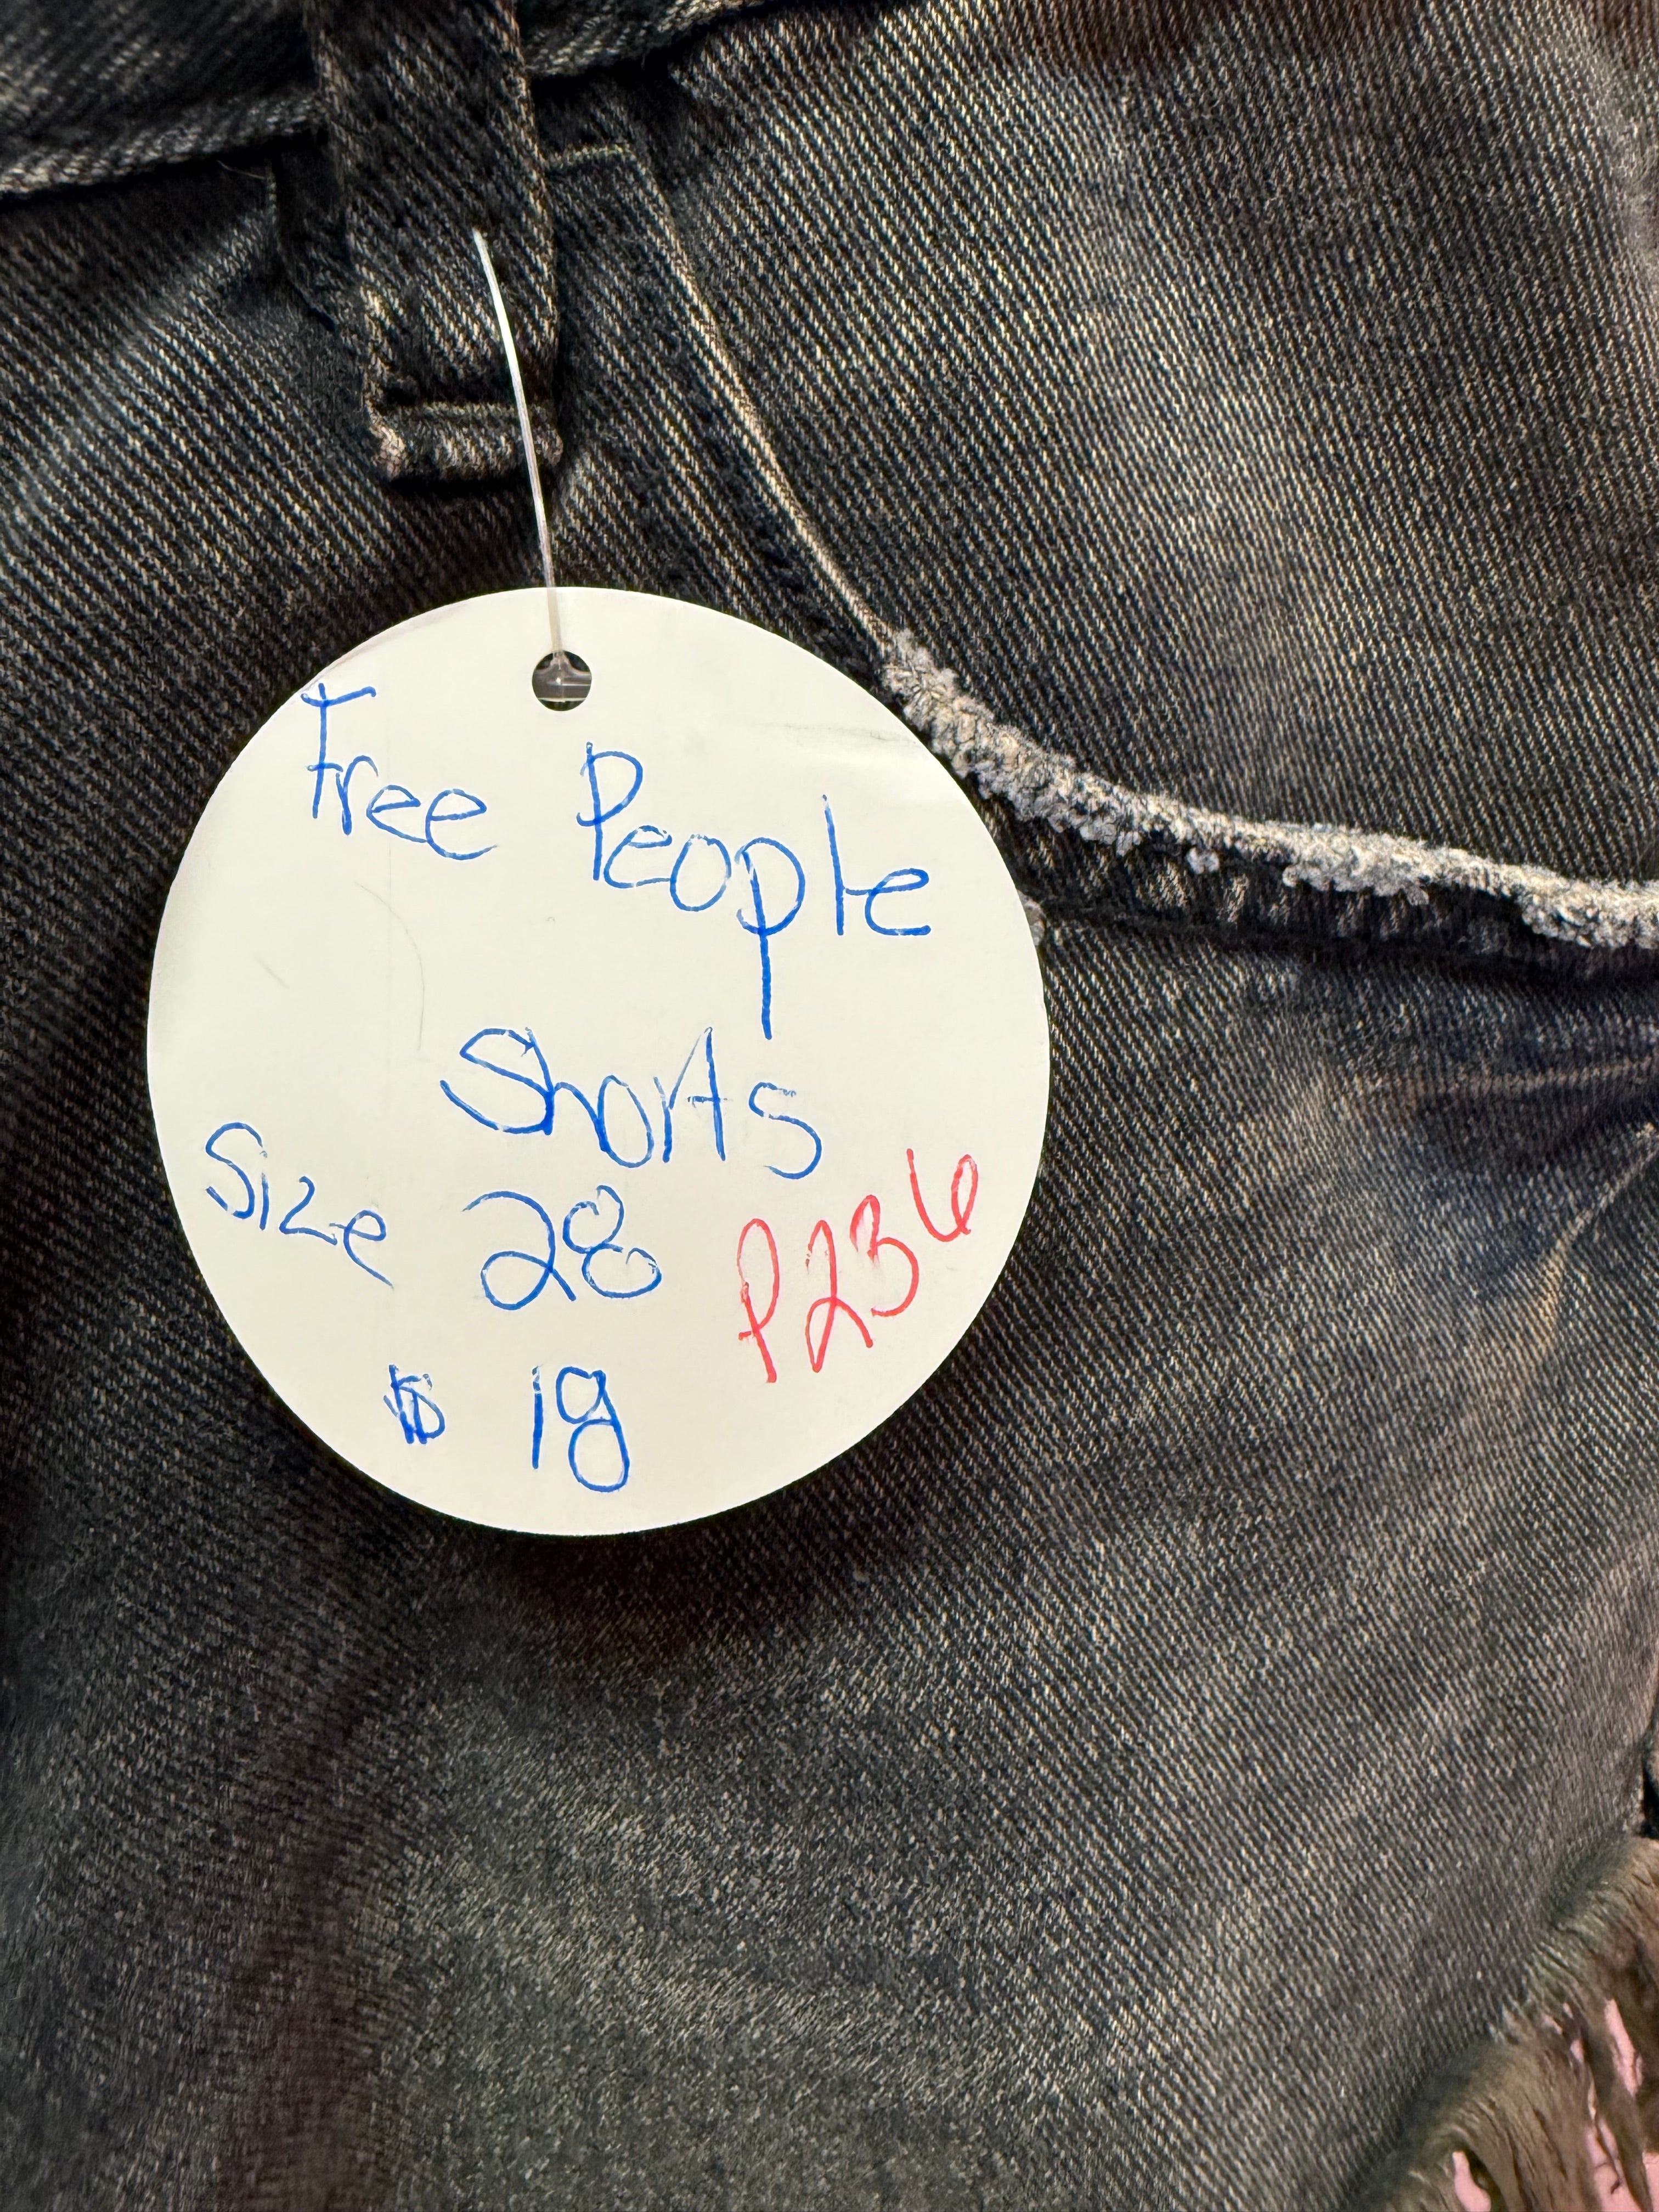 Free People
Shorts
Size 28
P236
$ 18